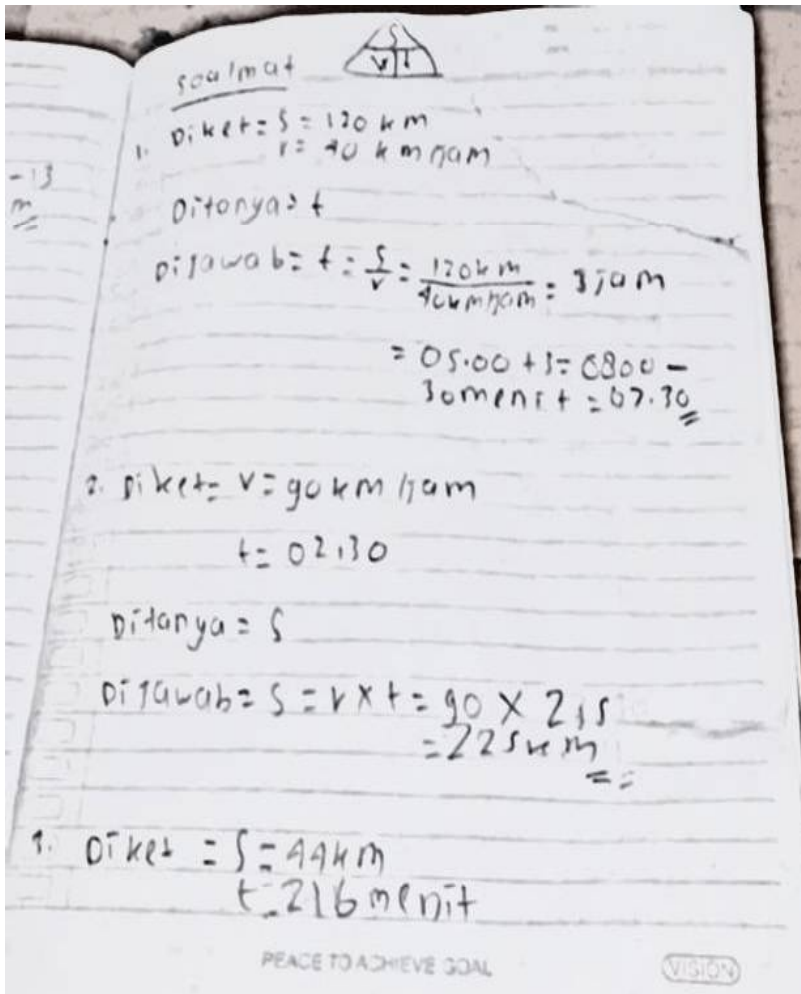 soalmat
S
v t
1. Diket = S = 120 km
v = 40 km/jam
-13
m
Ditanya = t
Dijawab = t = S/v = 120km/40km/jam = 3 jam
= 05.00 + 3 = 0800 -
30menit = 07.30
2. Diket = v = 90 km/jam
t = 02.30
Ditanya = S
Dijawab = S = v x t = 90 x 2,5
= 225 km
Diket = S = 44km
t = 216 menit
PEACE TO ACHIEVE GOAL
VISION